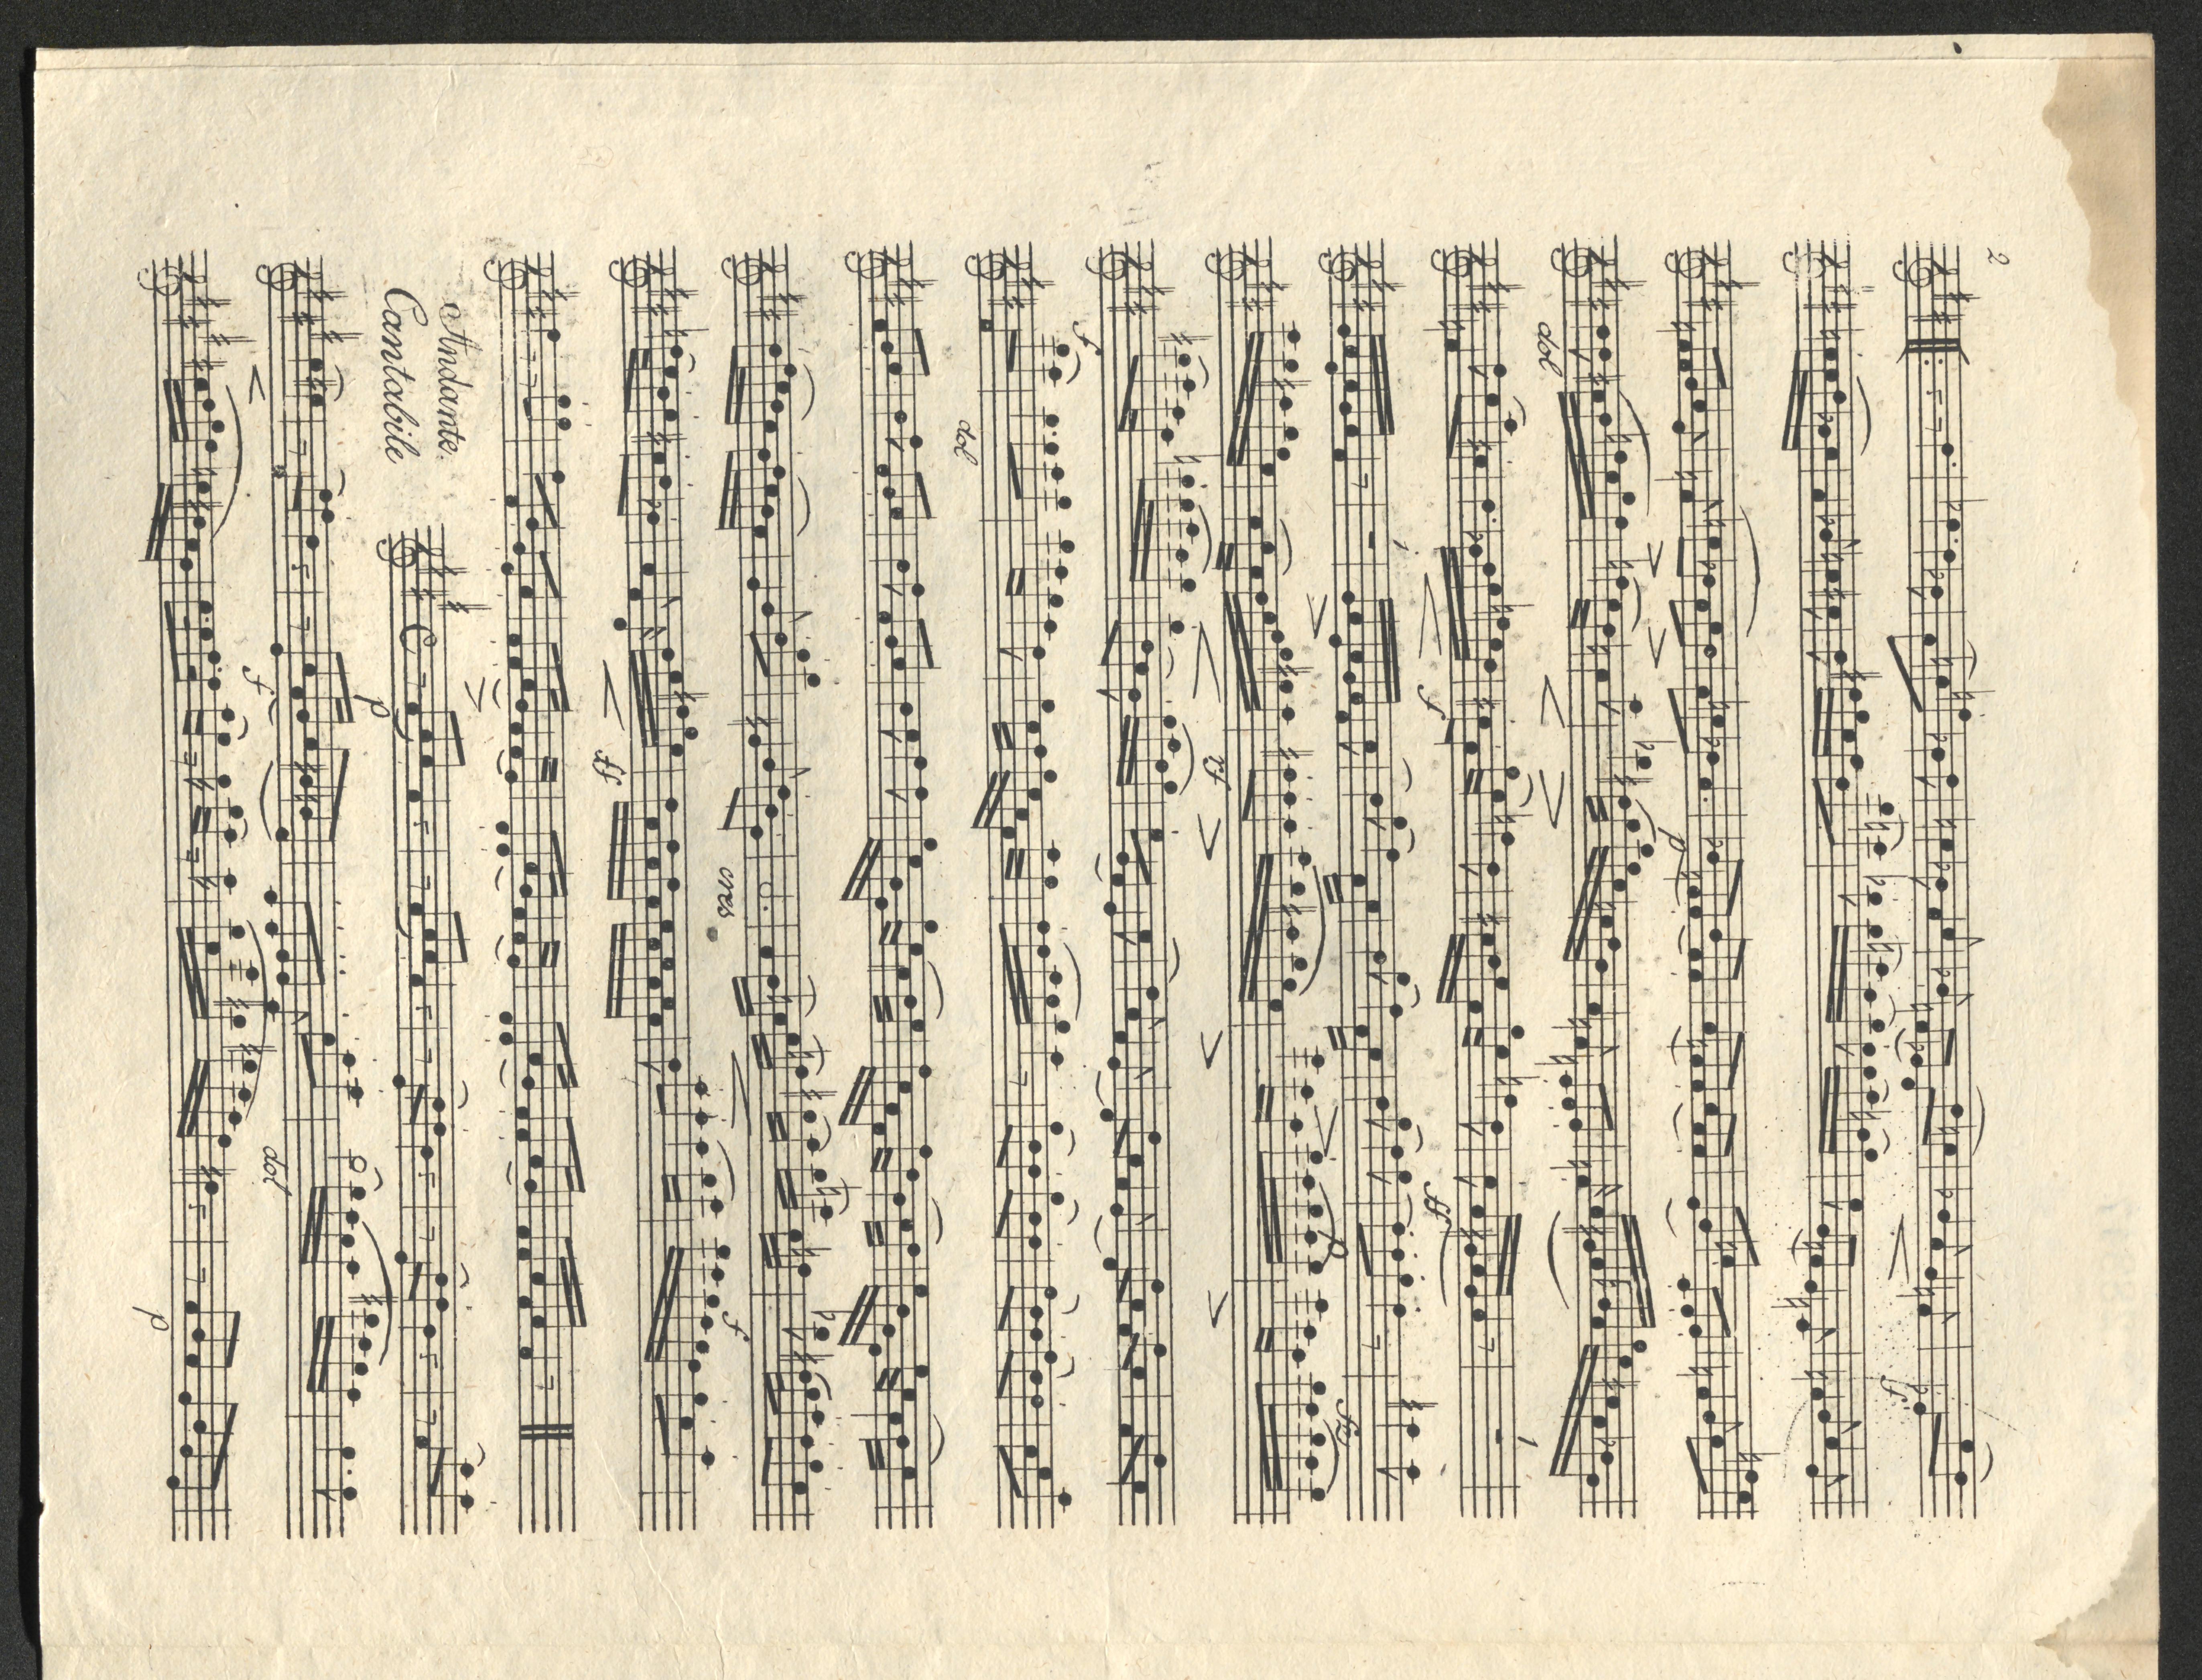 2
f
p
dol
ff
f
fz
p
rf
f
dol
cres
f
ff
Andante.
Cantabile
p
f
dol
p